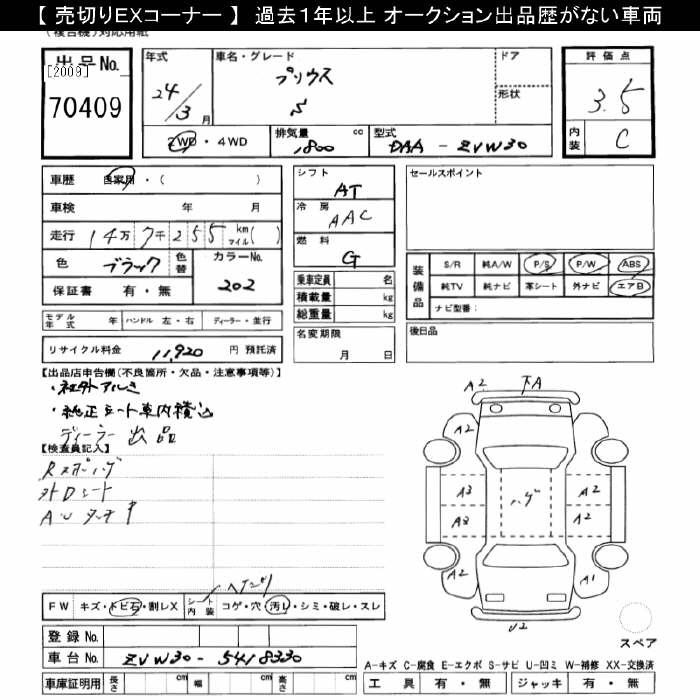 【 売切りEXコーナー 】 過去1年以上 オークション出品歴がない車両
出品No.
[2009]
70409
年式
24/3月
車名・グレード
プリウス
S
ドア
形状
評価点
3.5
内装
C
2WD・4WD
排気量 cc
1800
型式
DAA - ZVW30
車歴 自家用・( )
車検 年 月
走行 14万7千255 km マイル( )
色 ブラック 色替
カラーNo.
202
保証書 有・無
シフト
AT
冷房
AAC
燃料
G
乗車定員 名
積載量 kg
総重量 kg
セールスポイント
装備品
S/R 純A/W P/S P/W ABS
純TV 純ナビ 革シート 外ナビ エアB
ナビ型番：
モデル年式 年 ハンドル 左・右 ディーラー・並行
リサイクル料金 11,920 円 預託済
名変期限
月 日
後日品
【出品店申告欄(不良箇所・欠品・注意事項等)】
・社外アルミ
・純正シート車内積込
ディーラー出品
【検査員記入】
Rスポイラ
外Dシート
AWタッチ
下A
A2
A2
A2
A3
A3
ハゲ
A2
A2
A2
A1
U2
スペア
FW キズ・トビ石・割レX
シート内装 コゲ・穴・汚レ・シミ・破レ・スレ
登録No.
車台No. ZVW30-5418330
車庫証明用 長さ cm 幅 cm 高さ cm
A-キズ C-腐食 E-エクボ S-サビ U-凹ミ W-補修 XX-交換済
工具 有・無 ジャッキ 有・無